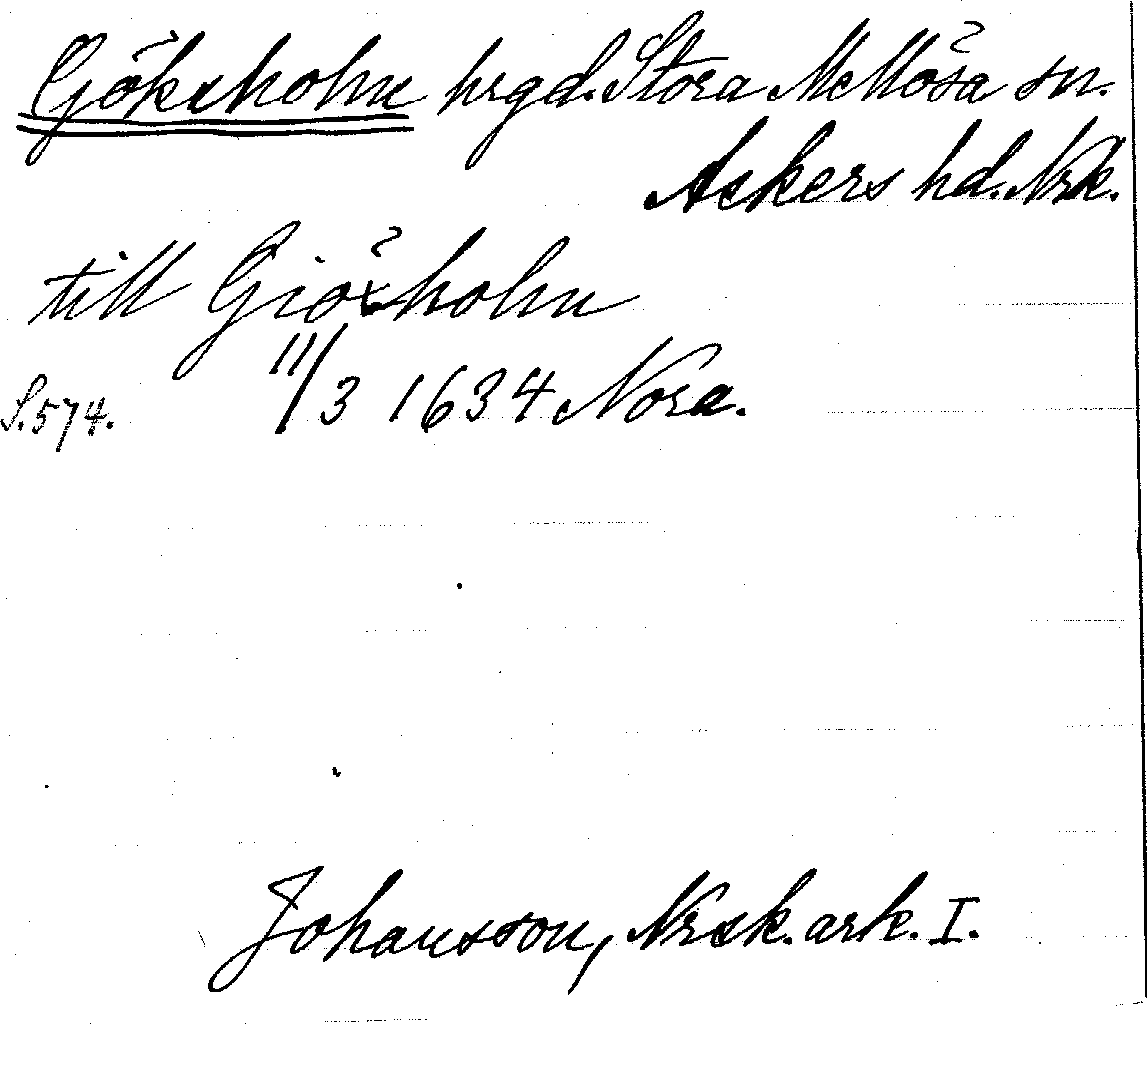 Göksholm hrgd. Stora Mellösa sn.
Askers hd. Nrk.
till Giöxholm
11/3 1634 Nora.
S. 574.
Johansson, Nrsk. ark. I.